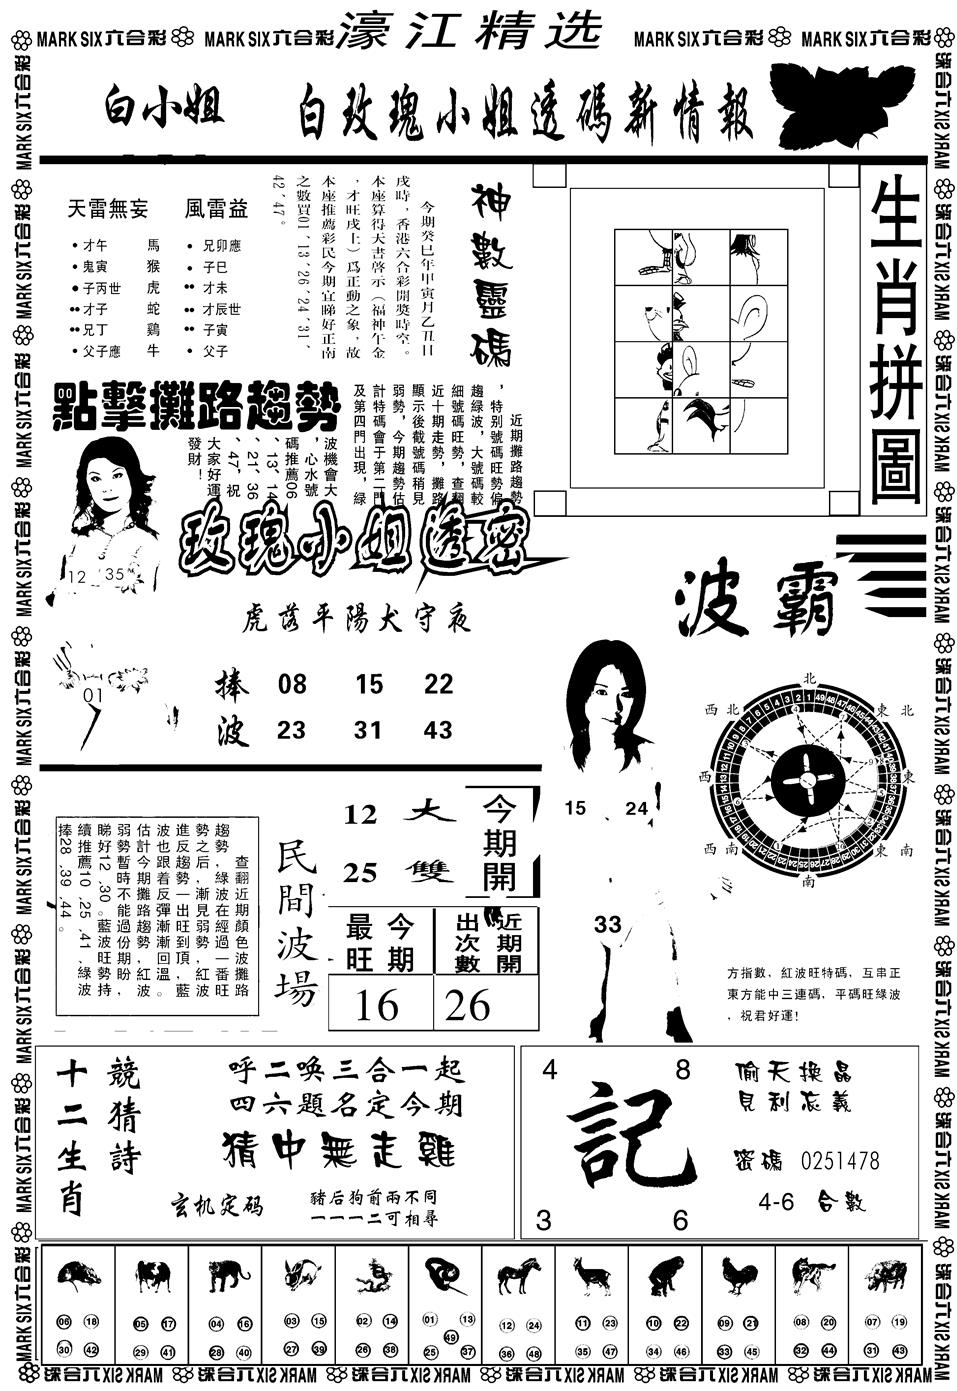 MARK SIX六合彩 MARK SIX六合彩 濠江精选 MARK SIX六合彩 MARK SIX六合彩
白小姐 白玫瑰小姐透碼新情報
天雷無妄 風雷益
才午 馬 兄卯應
鬼寅 猴 子巳
子丙世 虎 才未
才子 蛇 才辰世
兄丁 鷄 子寅
父子應 牛 父子
神數靈碼
今期癸巳年甲寅月乙丑日
戌時，香港六合彩開獎時空。
本座算得天書啓示（福神午金
，才旺戌上）爲正動之象，故
本座推薦彩民今期宜睇好正南
之數買01、13、26、24、31、
42、47。
生肖拼圖
點擊攤路趨勢
近期攤路趨勢
，特别號碼旺勢偏
趨綠波，大號碼較
細號碼旺勢，查翻
近十期走勢，攤路
顯示後截號碼稍見
弱勢，今期趨勢估
計特碼會于第二門
及第四門出現，綠
波機會大
，心水號
碼推薦06
、13、14
、21、36
、47，祝
大家好運
發財！
12 35
01
玫瑰小姐透密
虎落平陽犬守夜
捧 08 15 22
波 23 31 43
波霸
15 24
33
北
西北 東北
西 東
西南 東南
南
方指數，紅波旺特碼，互串正
東方能中三連碼，平碼旺綠波
，祝君好運！
查翻近期顏色波攤路
趨勢，綠波在經過一番旺
勢之后，漸見弱勢，紅波
進反趨勢一出旺到頂，藍
波也跟着反彈漸漸回溫。
估計今期攤路趨勢，紅波
弱勢暫時不能過份期盼，
睇好12、30。藍波旺勢持
續推薦10、25、41，綠波
捧28、39、44。
民間波場
12 大 今期開
25 雙
今期最旺 近期開出次數
16 26
十二生肖
競猜詩
呼二唤三合一起
四六題名定今期
猜中無走雞
玄机定码
豬后狗前兩不同
一一一二可相尋
4 8
記
3 6
偷天換晶
見利忘義
密碼 0251478
4-6 合數
06 18 05 17 04 16 03 15 02 14 01 13 12 24 11 23 10 22 09 21 08 20 07 19
49
30 42 29 41 28 40 27 39 26 38 25 37 36 48 35 47 34 46 33 45 32 44 31 43